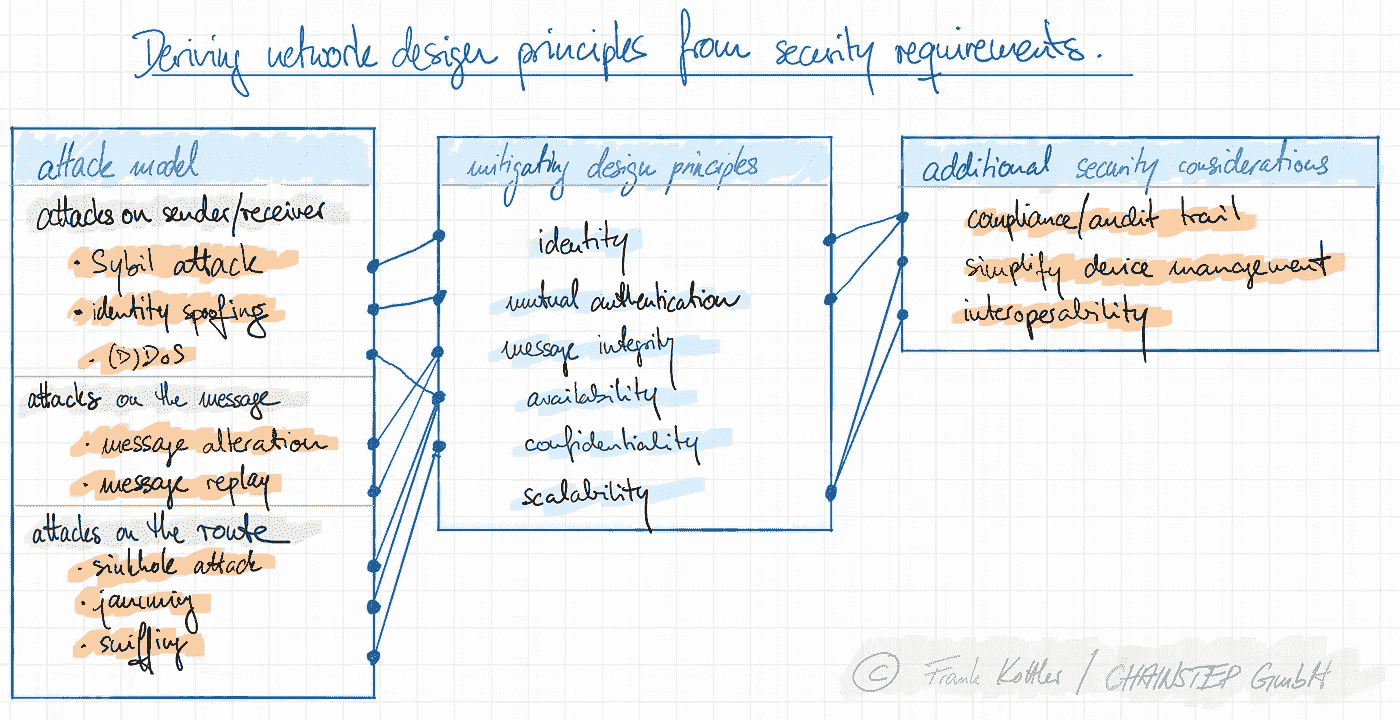 Deriving network design principles from security requirements.
attack model
attacks on sender/receiver
• Sybil attack
• identity spoofing
• (D)DoS
attacks on the message
• message alteration
• message replay
attacks on the route
• sinkhole attack
• jamming
• sniffing
mitigating design principles
identity
mutual authentication
message integrity
availability
confidentiality
scalability
additional security considerations
compliance/audit trail
simplify device management
interoperability
© Frank Kottler / CHAINSTEP GmbH